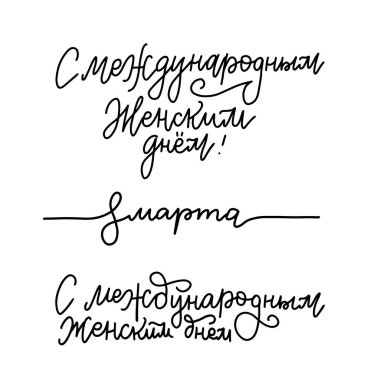 С международным
Женским
днём!
8 марта
С международным
Женским днём